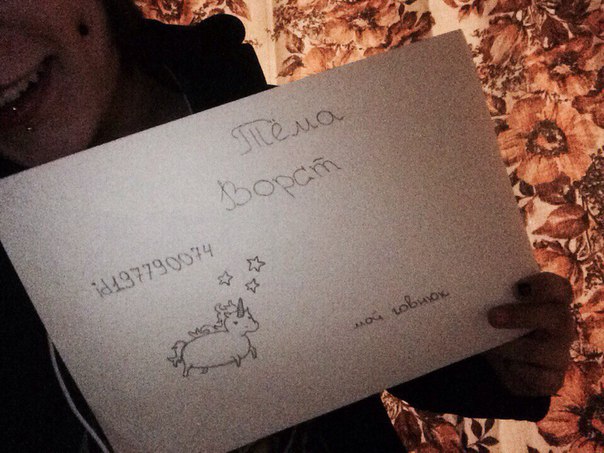 Тёма
Ворст
id197790074
мой говнюк